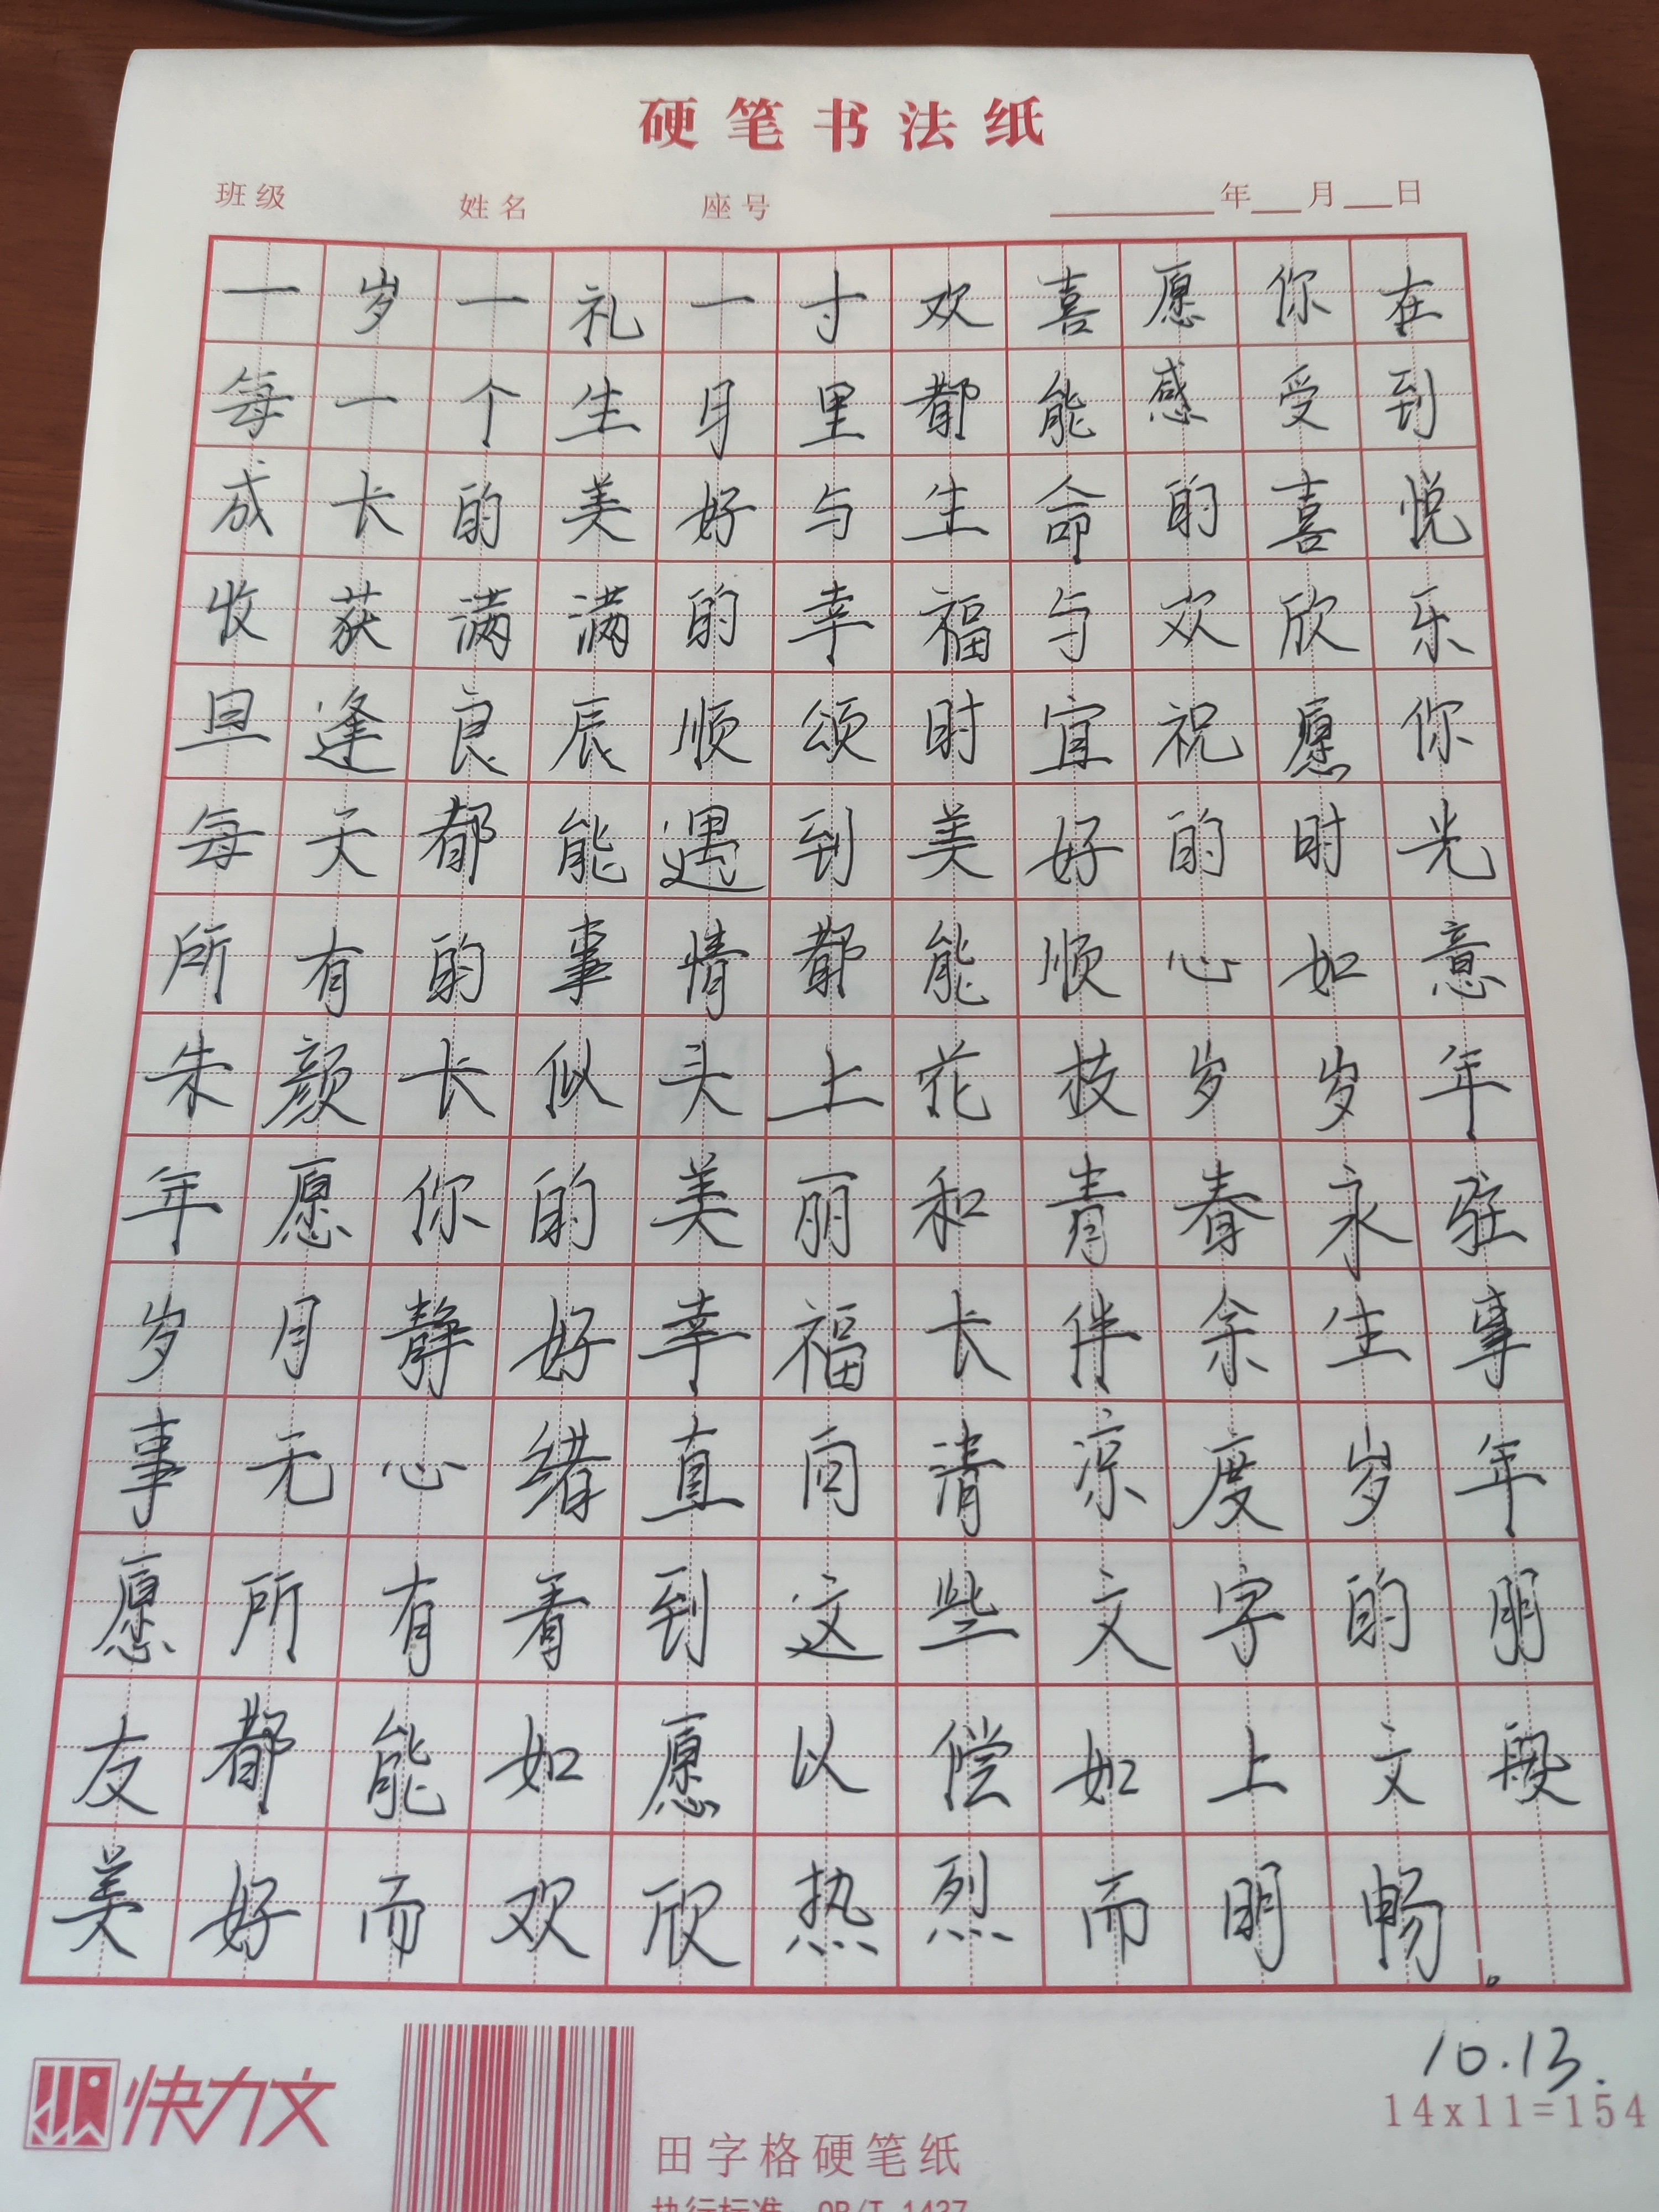 硬笔书法纸
班级 姓名 座号 年 月 日
一岁一礼一寸欢喜愿你在
每一个生月里都能感受到
成长的美好与生命的喜悦
收获满满的幸福与欢欣乐
旦逢良辰顺颂时宜祝愿你
每天都能遇到美好的时光
所有的事情都能顺心如意
朱颜长似头上花枝岁岁年
年愿你的美丽和青春永驻
岁月静好幸福长伴余生事
事无心绪直向清凉度岁年
愿所有看到这些文字的朋
友都能如愿以偿如上文段
美好而欢欣热烈而明畅。
10.13.
14x11=154
快力文
田字格硬笔纸
执行标准：QB/T 1437